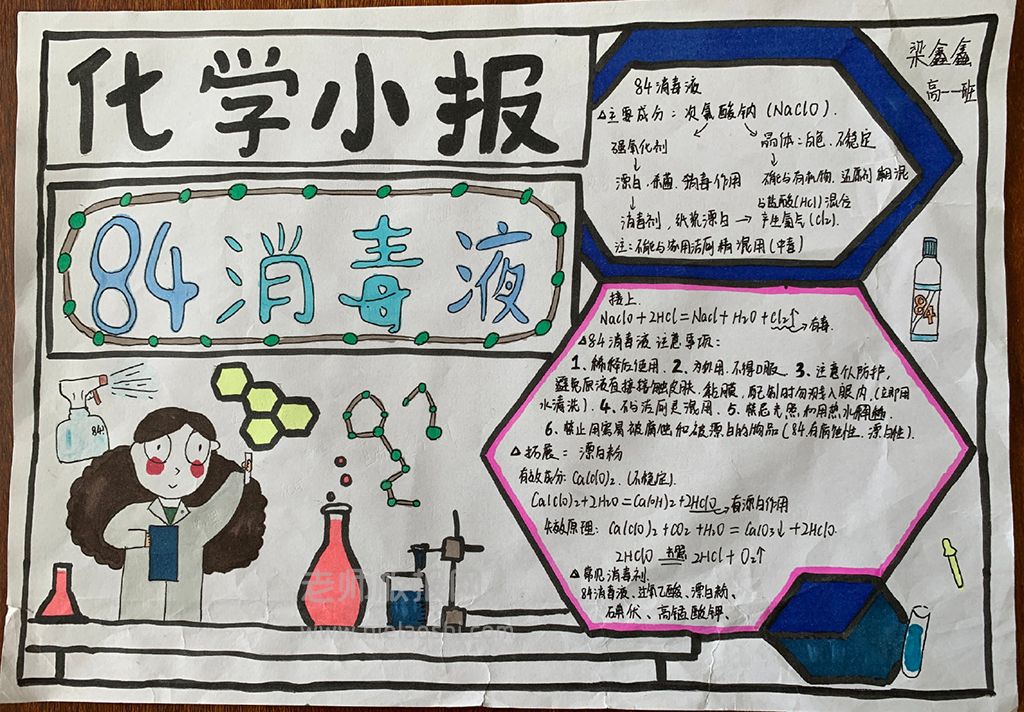 化学小报
84消毒液
84
梁鑫鑫
高一一班
84消毒液
△主要成分：次氯酸钠(NaClO).
强氧化剂
晶体：白色、不稳定
↓
↓
漂白、杀菌、消毒作用
不能与有机物、还原剂相混
↓
与盐酸(HCl)混合
消毒剂，纸浆漂白 → 产生氯气(Cl2).
注：不能与家用洁厕精混用(中毒)
84
接上.
NaClO+2HCl=NaCl+H2O+Cl2↑→有毒.
△84消毒液注意事项：
1、稀释后使用、2、外用、不得口服、3、注意保防护，
避免原液直接接触皮肤、黏膜，配制时勿溅入眼内.(立即用
水清洗)、4、不与洁厕灵混用、5、禁尼光照和用热水稀释.
6、禁止用容易被腐蚀和被漂白的物品(84有腐蚀性、漂白性).
△拓展：漂白粉
有效成分：Ca(ClO)2.(不稳定).
Ca(ClO)2+2H2O=Ca(OH)2+2HClO→有漂白作用
失效原理：Ca(ClO)2+CO2+H2O=CaCO3↓+2HClO.
2HClO=光照=2HCl+O2↑
△常见消毒剂.
84消毒液、过氧乙酸、漂白粉、
石典伏、高锰酸钾、
老师板报网